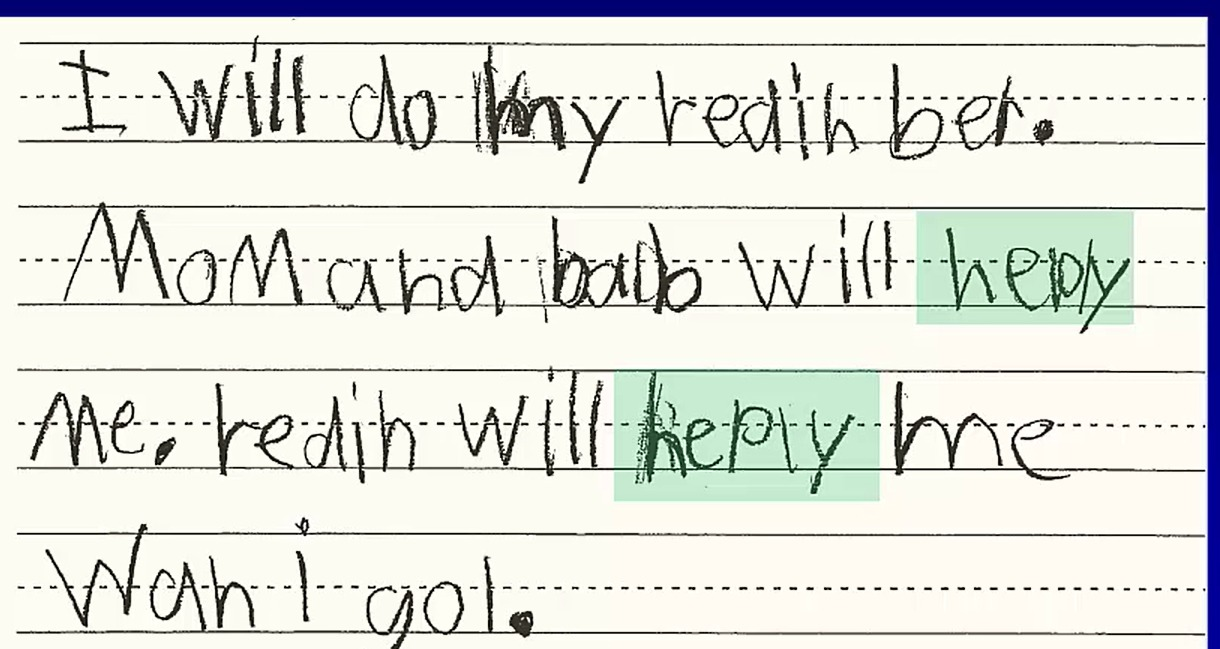 I will do my redin ber.
MoM and bab will hepy
Me. redin will heply me
Wan i gol.